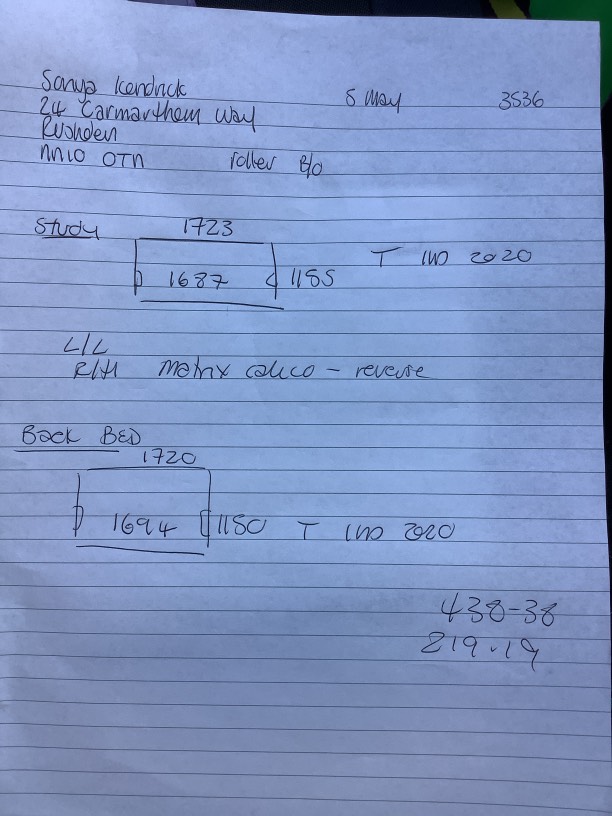 Sonya Kendrick 5 May 3536
24 Carmarthem Way
Rushden
NN10 OTN roller B/O
Study 1723
1687 1155 T IWD 2020
L/L
R/H Matrix calico - reverse
Back BED
1720
1694 1150 T IWD 2020
438-38
219.19